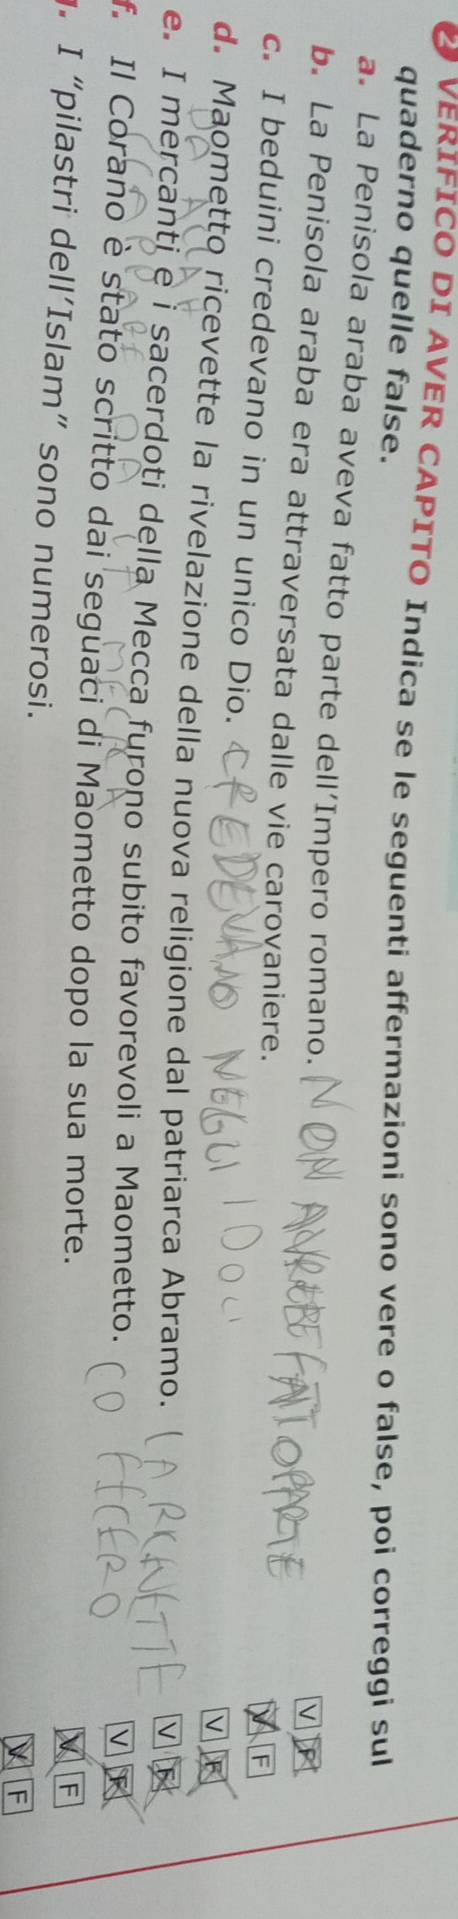 2 VERIFICO DI AVER CAPITO Indica se le seguenti affermazioni sono vere o false, poi correggi sul
quaderno quelle false.
a. La Penisola araba aveva fatto parte dell'Impero romano. NON AVREBBE FATTO PARTE V F
b. La Penisola araba era attraversata dalle vie carovaniere. V F
c. I beduini credevano in un unico Dio. CREDEVANO NEGLI IDOLI V F
d. Maometto ricevette la rivelazione della nuova religione dal patriarca Abramo. LA RICEVETTE V F
DA ALLAH
e. I mercanti e i sacerdoti della Mecca furono subito favorevoli a Maometto. LO FECERO V F
DA LA MECCA
f. Il Corano è stato scritto dai seguaci di Maometto dopo la sua morte. V F
. I "pilastri dell'Islam" sono numerosi. V F